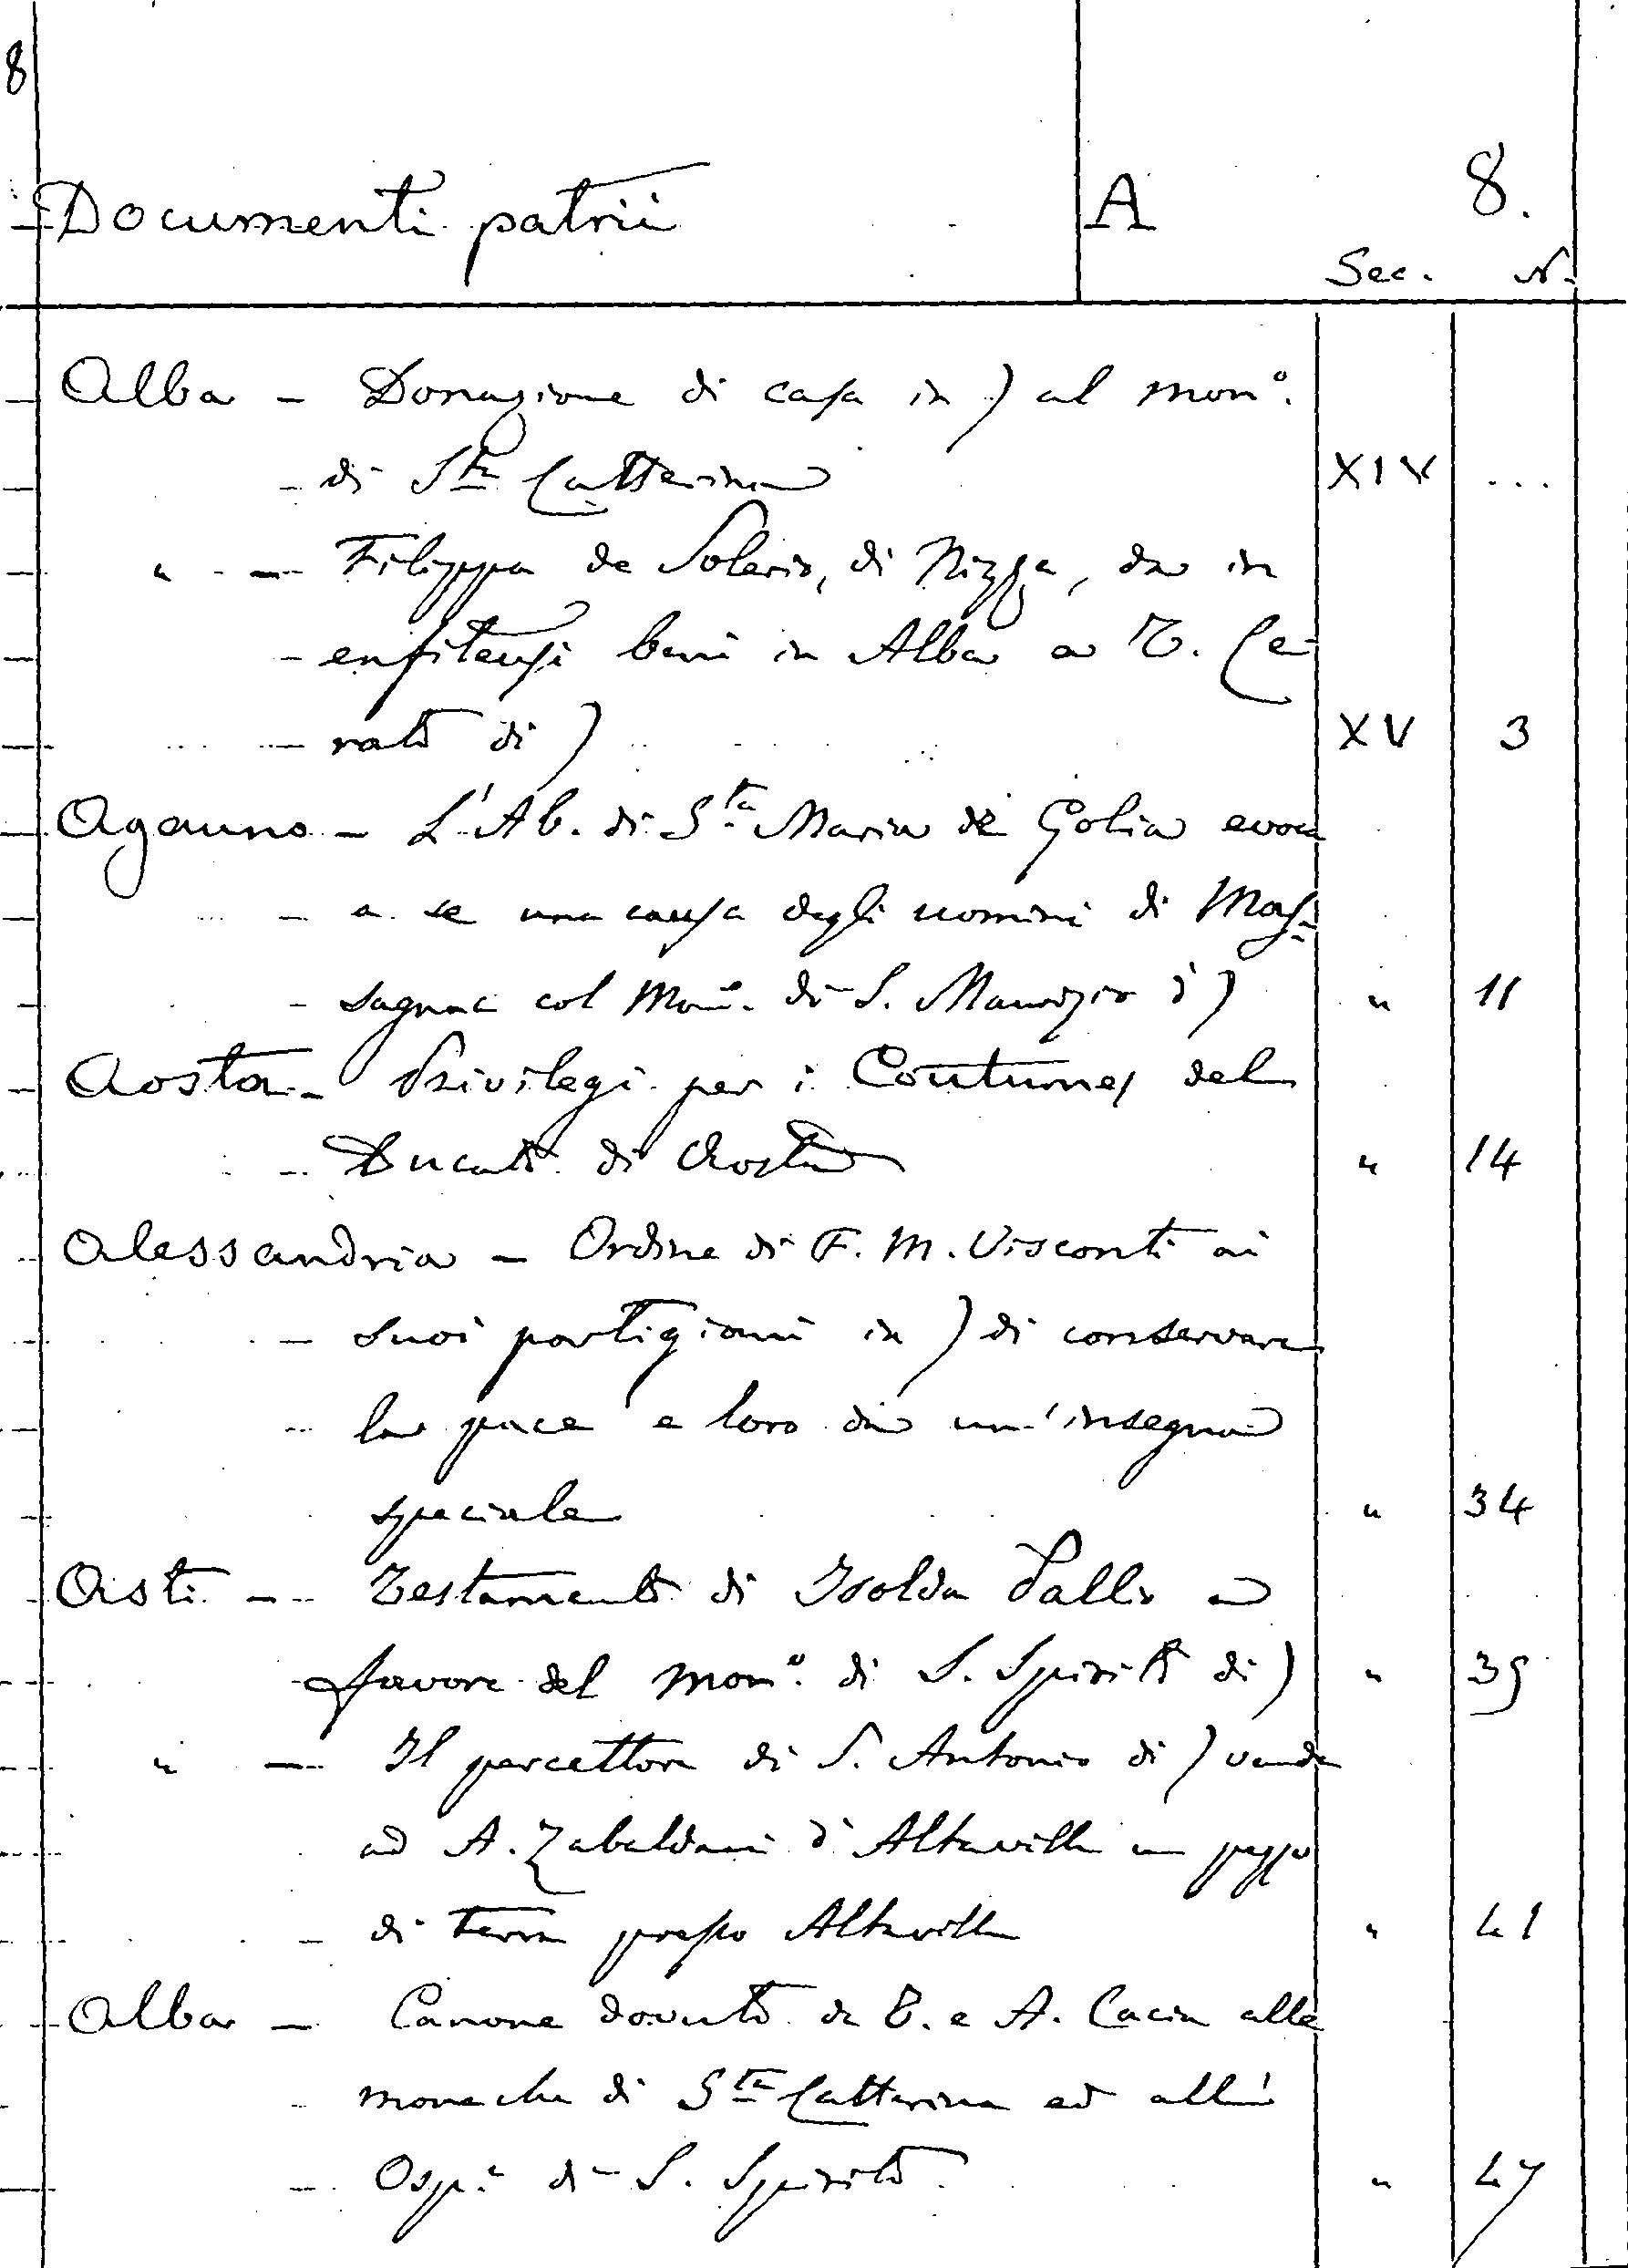 8
Documenti patrii A 8.
Sec. N.
Alba - Donazione di casa in ) al mon°.
di Sta Catterina XIV ...
" - Filippa de Solerio, di Nizza, da in
enfiteusi beni in Alba a T. Ce-
rato di ) XV 3
Agauno - L'Ab. di Sta Maria de Golia evoca
a se una causa degli uomini di Mas-
sagnac col Mon°. di S. Maurizio d' ) " 11
Aosta - Privilegi per i Coutumes del
Ducato di Aosta " 14
Alessandria - Ordine di F. M. Visconti ai
suoi partigiani in ) di conservare
la pace e loro dà un'insegna
speciale " 34
Asti - Testamento di Isolda Pallio a
favore del mon°. di S. Spirito di ) " 39
" - Il percettore di S. Antonio di ) vende
ad A. Zabaldani d'Altavilla un pezzo
di terra presso Altavilla " 41
Alba - Canone dovuto da B. e A. Cacia alle
monache di Sta Catterina ed all'
Osp.e di S. Spirito. " 47